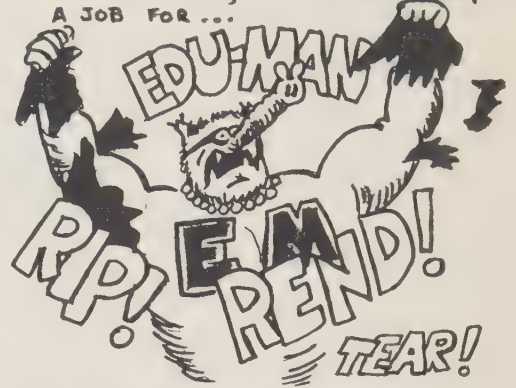 A JOB FOR...
EDU-MAN
E M
RIP!
REND!
TEAR!